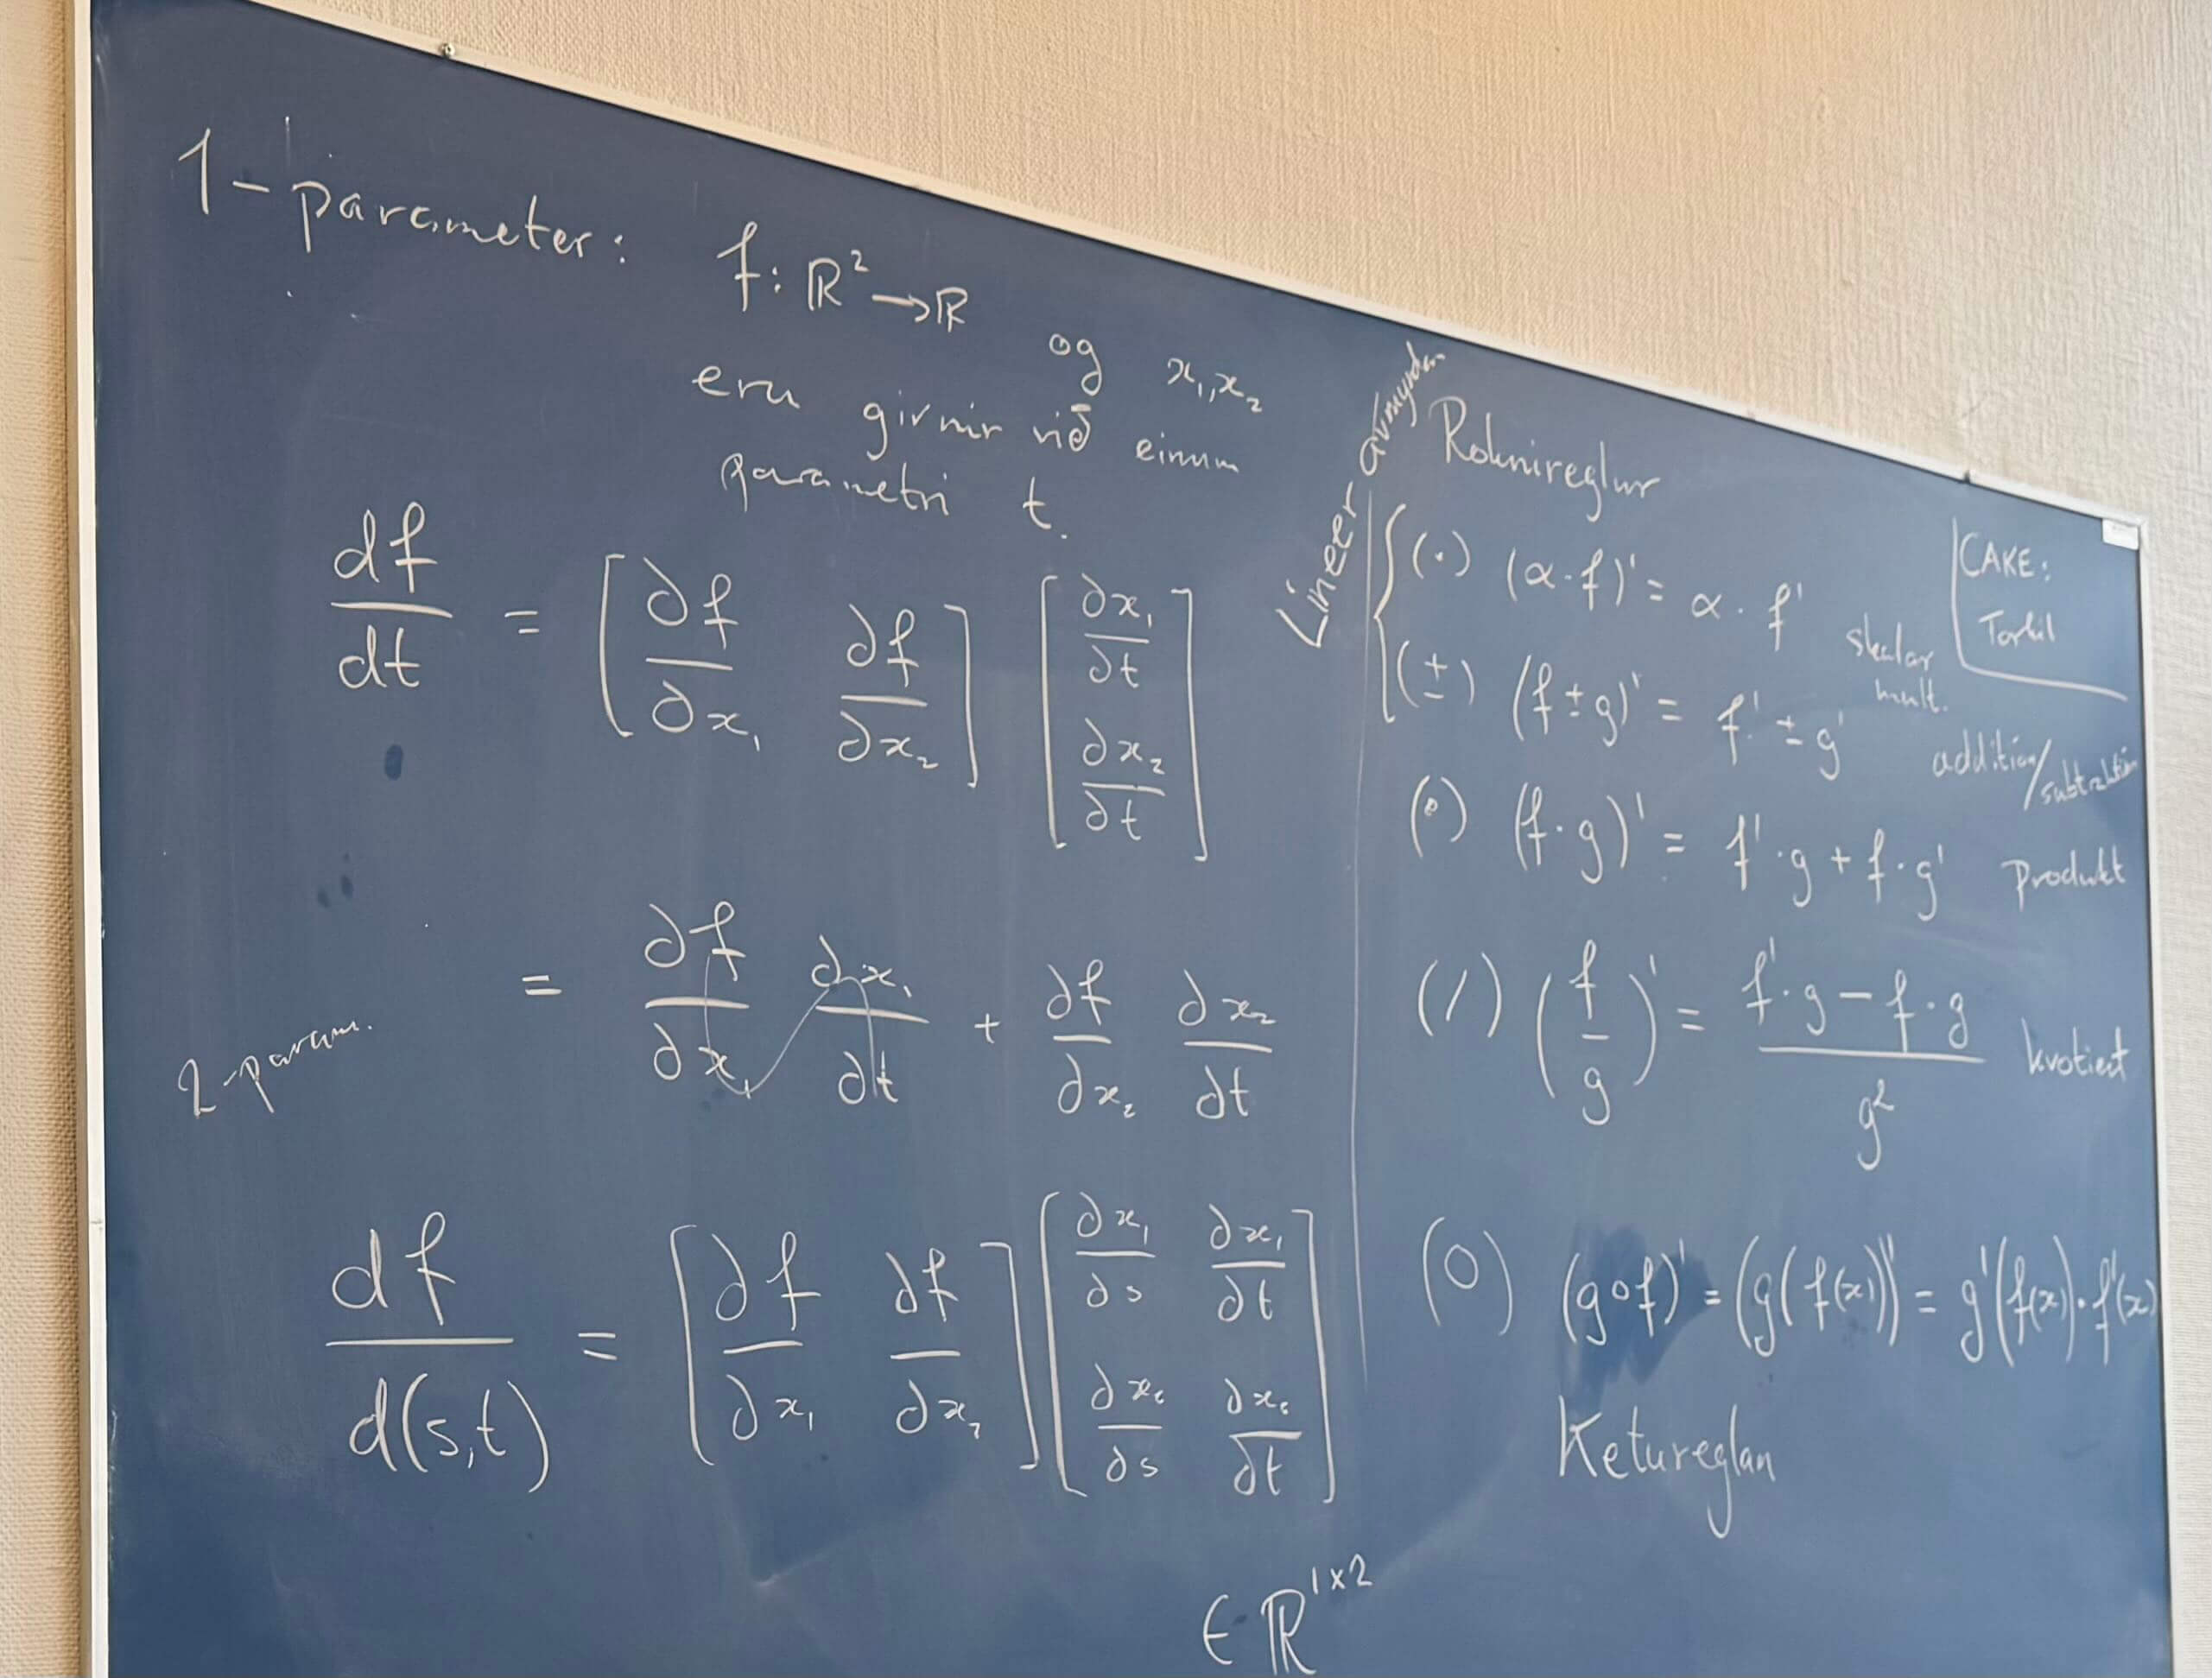 1-parameter: f: ℝ² → ℝ og x₁, x₂
eru givnir við einum
parametri t.
df/dt = [∂f/∂x₁ ∂f/∂x₂] [∂x₁/∂t ; ∂x₂/∂t]
= ∂f/∂x₁ ∂x₁/∂t + ∂f/∂x₂ ∂x₂/∂t
2-param.
df/d(s,t) = [∂f/∂x₁ ∂f/∂x₂] [∂x₁/∂s ∂x₁/∂t ; ∂x₂/∂s ∂x₂/∂t]
∈ ℝ¹ˣ²
Lineer avmyndan
Roknireglur
(·) (α·f)' = α·f' skalar mult.
(±) (f±g)' = f' ± g' addition/subtraktion
(·) (f·g)' = f'·g + f·g' Produkt
(/) (f/g)' = (f'·g − f·g)/g² kvotient
(o) (g∘f)' = (g(f(x))' = g'(f(x))·f'(x)
Ketureglan
CAKE: